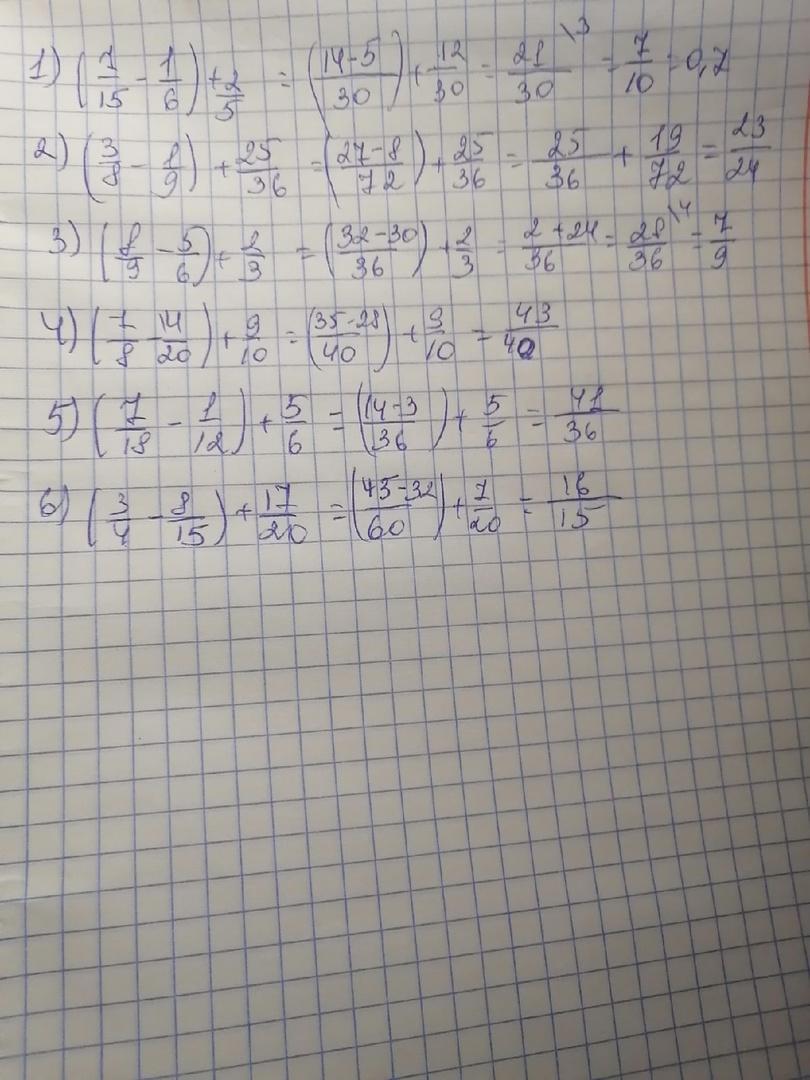 1) (7/15 - 1/6) + 2/5 = ((14-5)/30) + 12/30 = 21/30 \3 = 7/10 = 0,7
2) (3/8 - 1/9) + 25/36 = ((27-8)/72) + 25/36 = 25/36 + 19/72 = 23/24
3) (8/9 - 5/6) + 2/3 = ((32-30)/36) + 2/3 = (2+24)/36 = 28/36 \4 = 7/9
4) (7/8 - 14/20) + 9/10 = ((35-28)/40) + 9/10 = 43/40
5) (7/18 - 1/12) + 5/6 = ((14-3)/36) + 5/6 = 41/36
6) (3/4 - 8/15) + 17/20 = ((45-32)/60) + 7/20 = 16/15